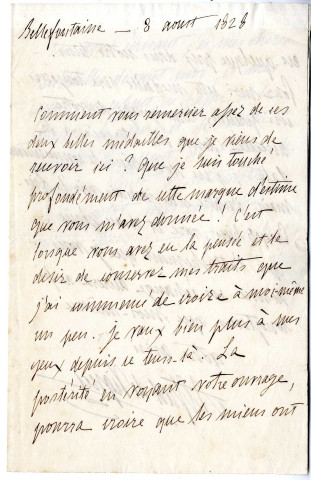 Bellefontaine — 8 aoust 1828
Comment vous remercier assez de ces
deux belles médailles que je viens de
recevoir ici ? Que je suis touché
profondément de cette marque d'estime
que vous m'avez donnée ! C'est
lorsque vous avez eu la pensée et le
desir de conserver mes traits que
j'ai commencé de croire à moi-même
un peu. Je vaux bien plus à mes
yeux depuis ce tems-là. La
postérité en voyant votre ouvrage,
pourra croire que les miens ont